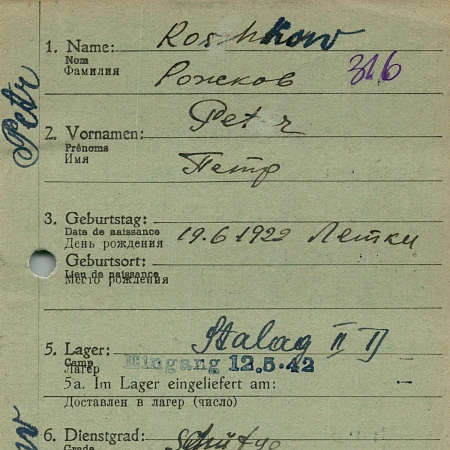 1. Name: Roschkow
Nom
Фамилия Рожков 316
Petr
2. Vornamen: Petr
Prénoms
Имя Петр
3. Geburtstag:
Date de naissance
День рождения 19.6.1922 Летки
Geburtsort:
Lieu de naissance
Место рождения
5. Lager: Stalag II D
Camp
Лагерь Eingang 12.5.42
5a. Im Lager eingeliefert am:
Доставлен в лагер (число)
6. Dienstgrad: Schütze
Grade